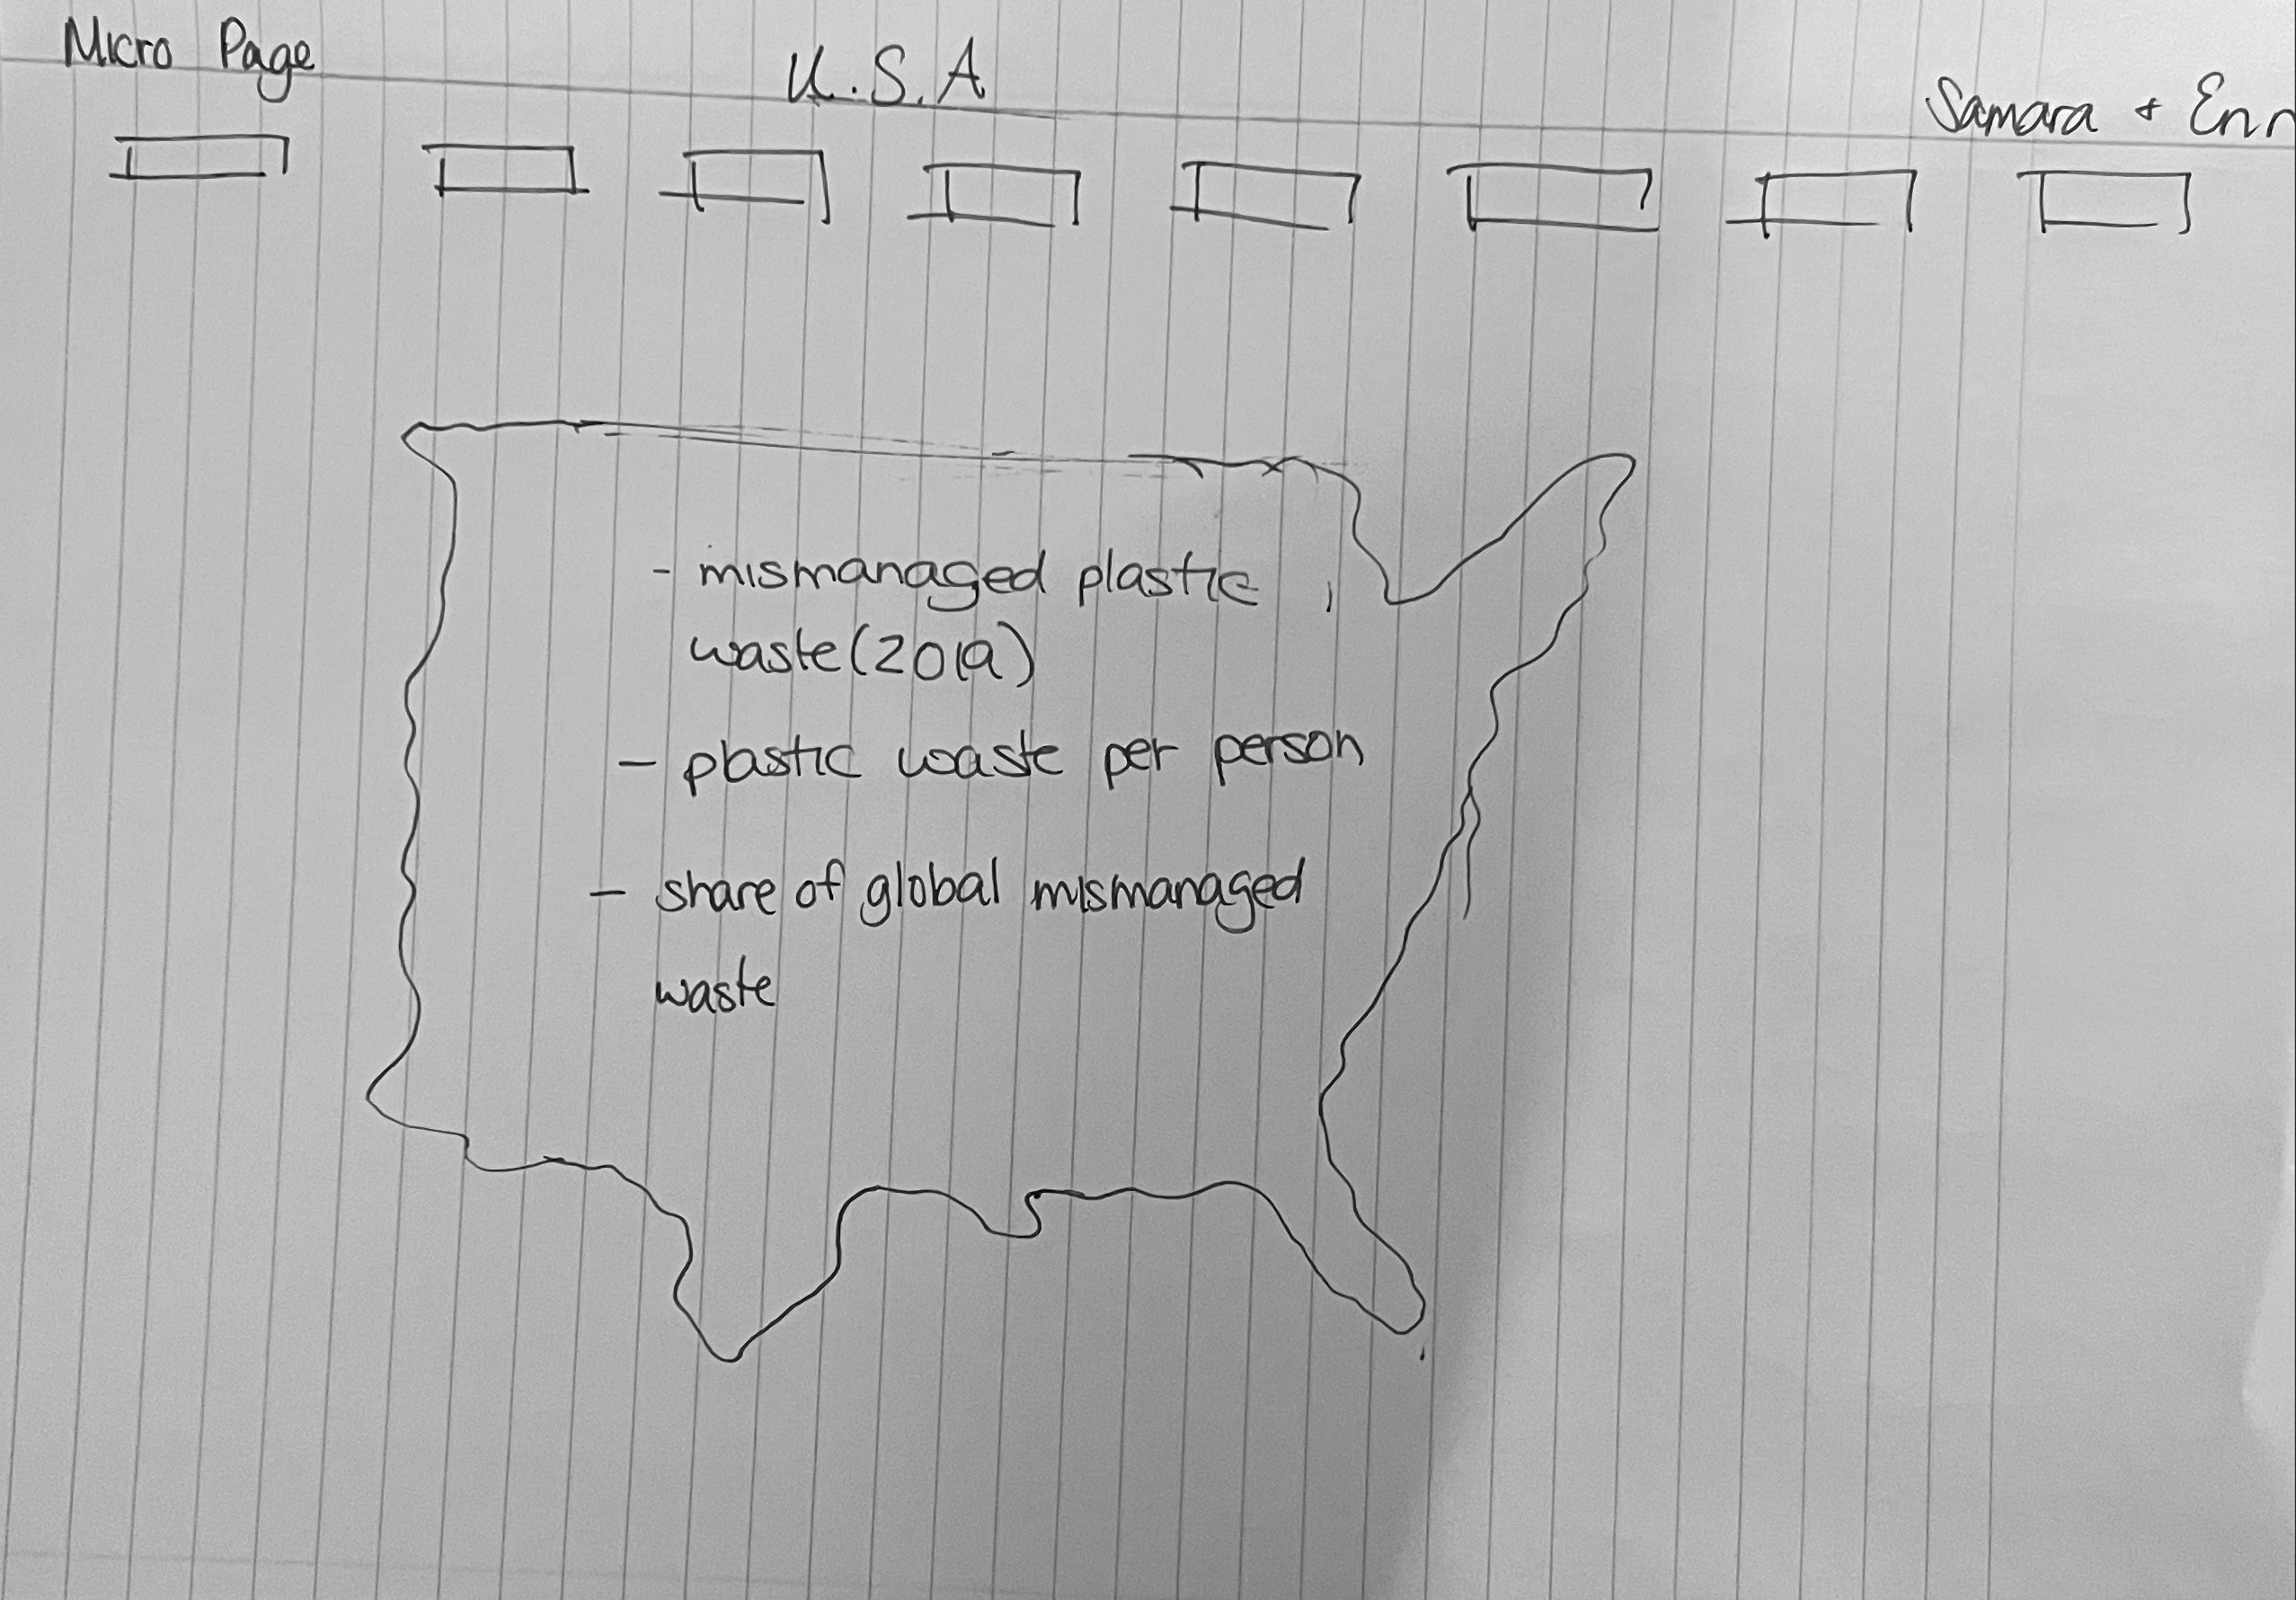 Micro Page
U.S.A
Samara +
- mismanaged plastic
waste (2019)
- plastic waste per person
- share of global mismanaged
waste